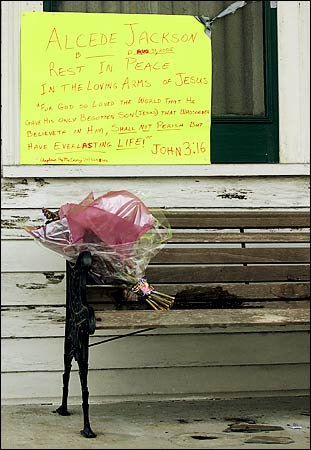 ALCEDE JACKSON
B D AUG 31, 2005
REST IN PEACE
IN THE LOVING ARMS OF JESUS
"FOR GOD SO LOVED THE WORLD THAT HE
GAVE HIS ONLY BEGOTTEN SON (JESUS) THAT WHOSOEVER
BELIEVETH IN HIM, SHALL NOT PERISH BUT
HAVE EVERLASTING LIFE!"
JOHN 3:16